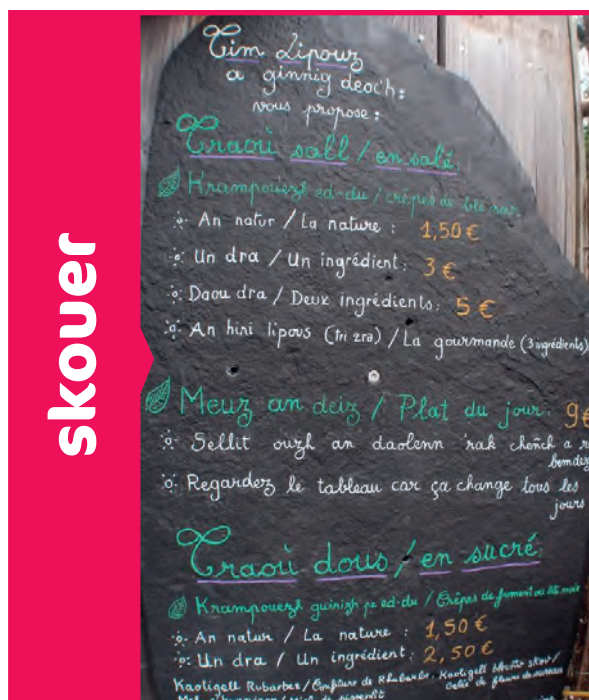 skouer
Tim Lipouz
a ginnig deoc'h:
vous propose:
Traoù sall / en salé
Krampouezh ed-du / crêpes de blé noir
An natur / La nature : 1,50 €
Un dra / Un ingrédient: 3 €
Daou dra / Deux ingrédients: 5 €
An hini lipous (tri zra) / La gourmande (3 ingrédients)
Meuz an deiz / Plat du jour: 9€
Sellit ouzh an daolenn 'rak cheñch a r
bemdez
Regardez le tableau car ça change tous les
jours
Traoù dous / en sucré
Krampouezh guinizh pe ed-du / Crêpes de froment ou blé noir
An natur / La nature : 1,50 €
Un dra / Un ingrédient: 2,50 €
Kaotigell Rubarbez / Confiture de Rhubarbe. Kaotigell bleuñv skav /
Gelée de fleurs de sureau